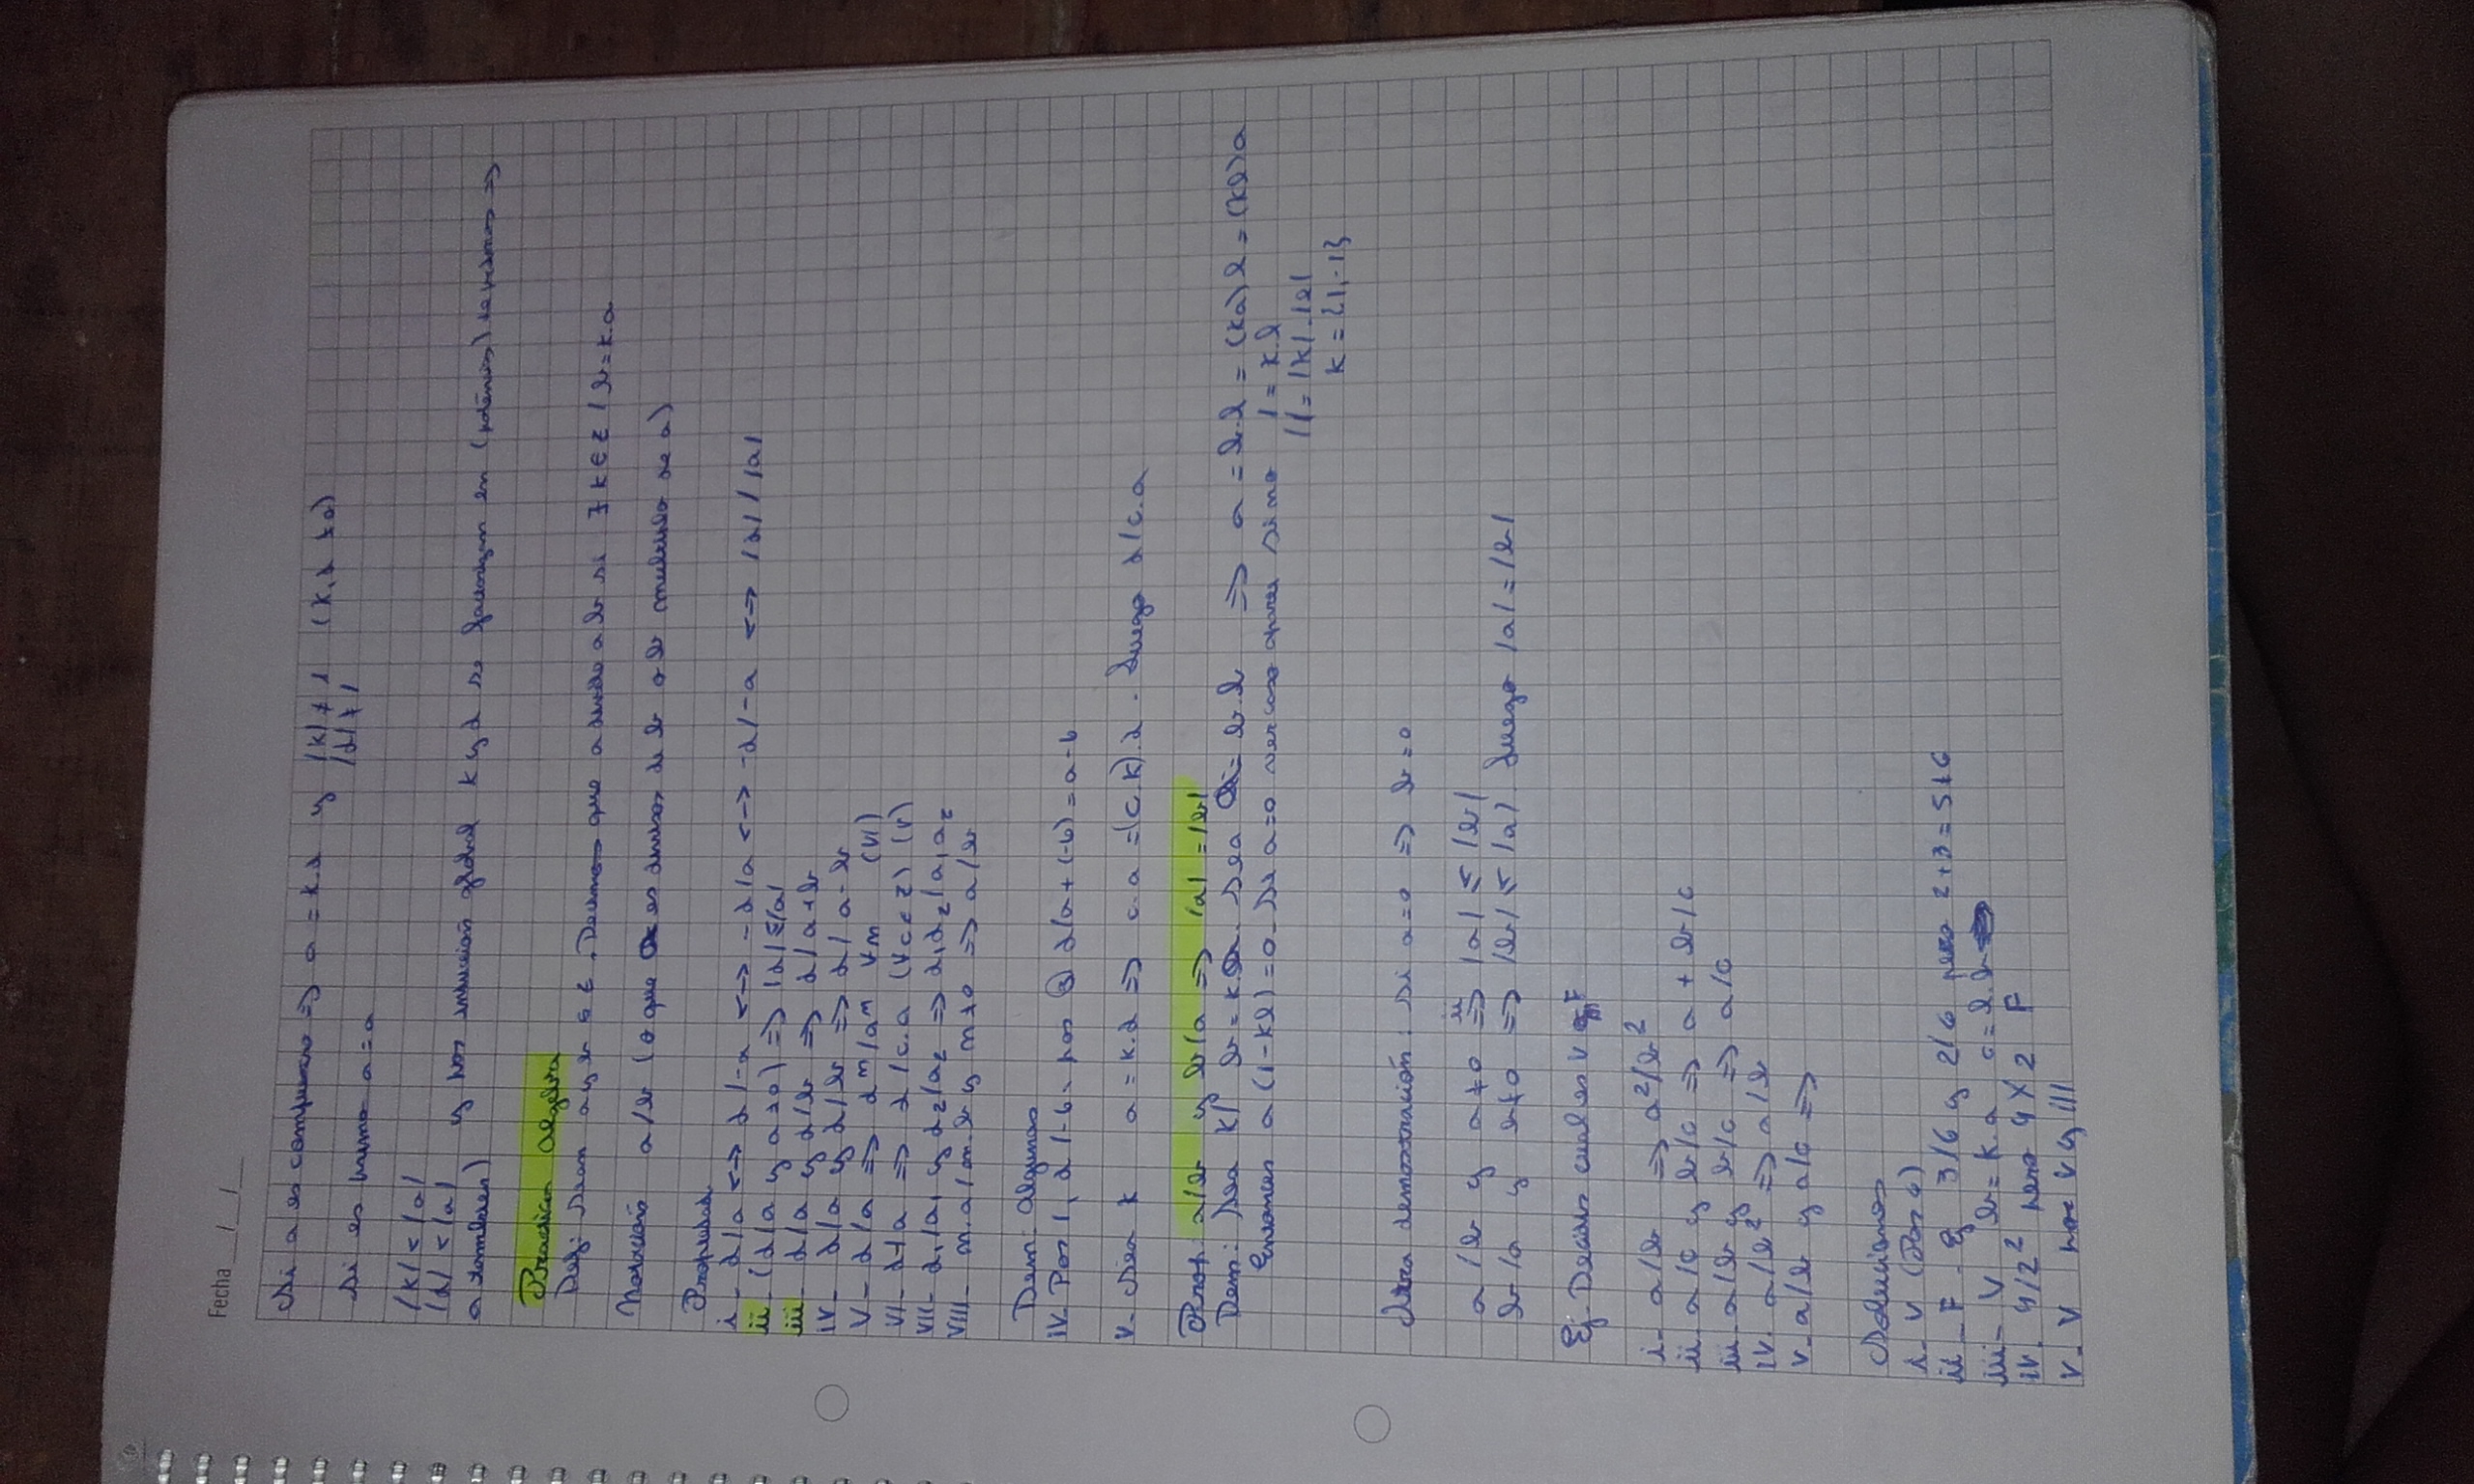 Fecha __/__/__
Si a es compuesto => a = k.d y |k| ≠ 1 (k,d ≠ 0)
|d| ≠ 1
Si es primo a = a
|k| < |a|
|d| < |a| y por inducción global k y d se factorizan en (potencias) de primos =>
a también)
Practica Algebra
Def: Sean a y b ∈ Z. Decimos que a divide a b si ∃ k ∈ Z / b = k.a
Notación a/b (o que a es divisor de b o b multiplo de a)
Propiedad
i- d/a <-> d/-a <-> -d/a <-> -d/-a <-> |d| / |a|
ii- (d/a y a≠0) => |d| ≤ |a|
iii- d/a y d/b => d/a+b
iv- d/a y d/b => d/a-b
V- d/a => d^m/a^m ∀m (VI)
VI- d/a => d/c.a (∀c∈Z) (V)
VII- d₁/a₁ y d₂/a₂ => d₁d₂/a₁a₂
VIII- m.a/m.b y m≠0 => a/b
Dem: Algunas
iv- Por 1, d/-b, por ③ d/a+(-b) = a-b
v- Sea k a = k.d => c.a = (c.k).d. Luego d/c.a
Prop: a/b y b/a => |a| = |b|
Dem: Sea k/ b = k.a. Sea a = b.l => a = b.l = (ka)l = (kl)a
Entonces a(1-kl) = 0. Si a=0 ver caso aparte si no 1 = k.l
|1| = |k|.|l|
k = {1,-1}
Otra demostración: Si a=0 => b=0
a/b y a≠0 =>^ii |a| ≤ |b|
b/a y b≠0 => |b| ≤ |a|. Luego |a| = |b|
Ej- Decidir cual es V o F
i- a/b => a²/b²
ii- a/c y b/c => a + b/c
iii- a/b y b/c => a/c
iv- a/b² => a/b
v- a/b y a/c =>
Soluciones
i- V (Por 6)
ii- F- Ej 3/6 y 2/6 pero 2+3 = 5∤6
iii- V b = k.a c = l.b
iv- 4/2² pero 4∤2 F
v- V por V y III